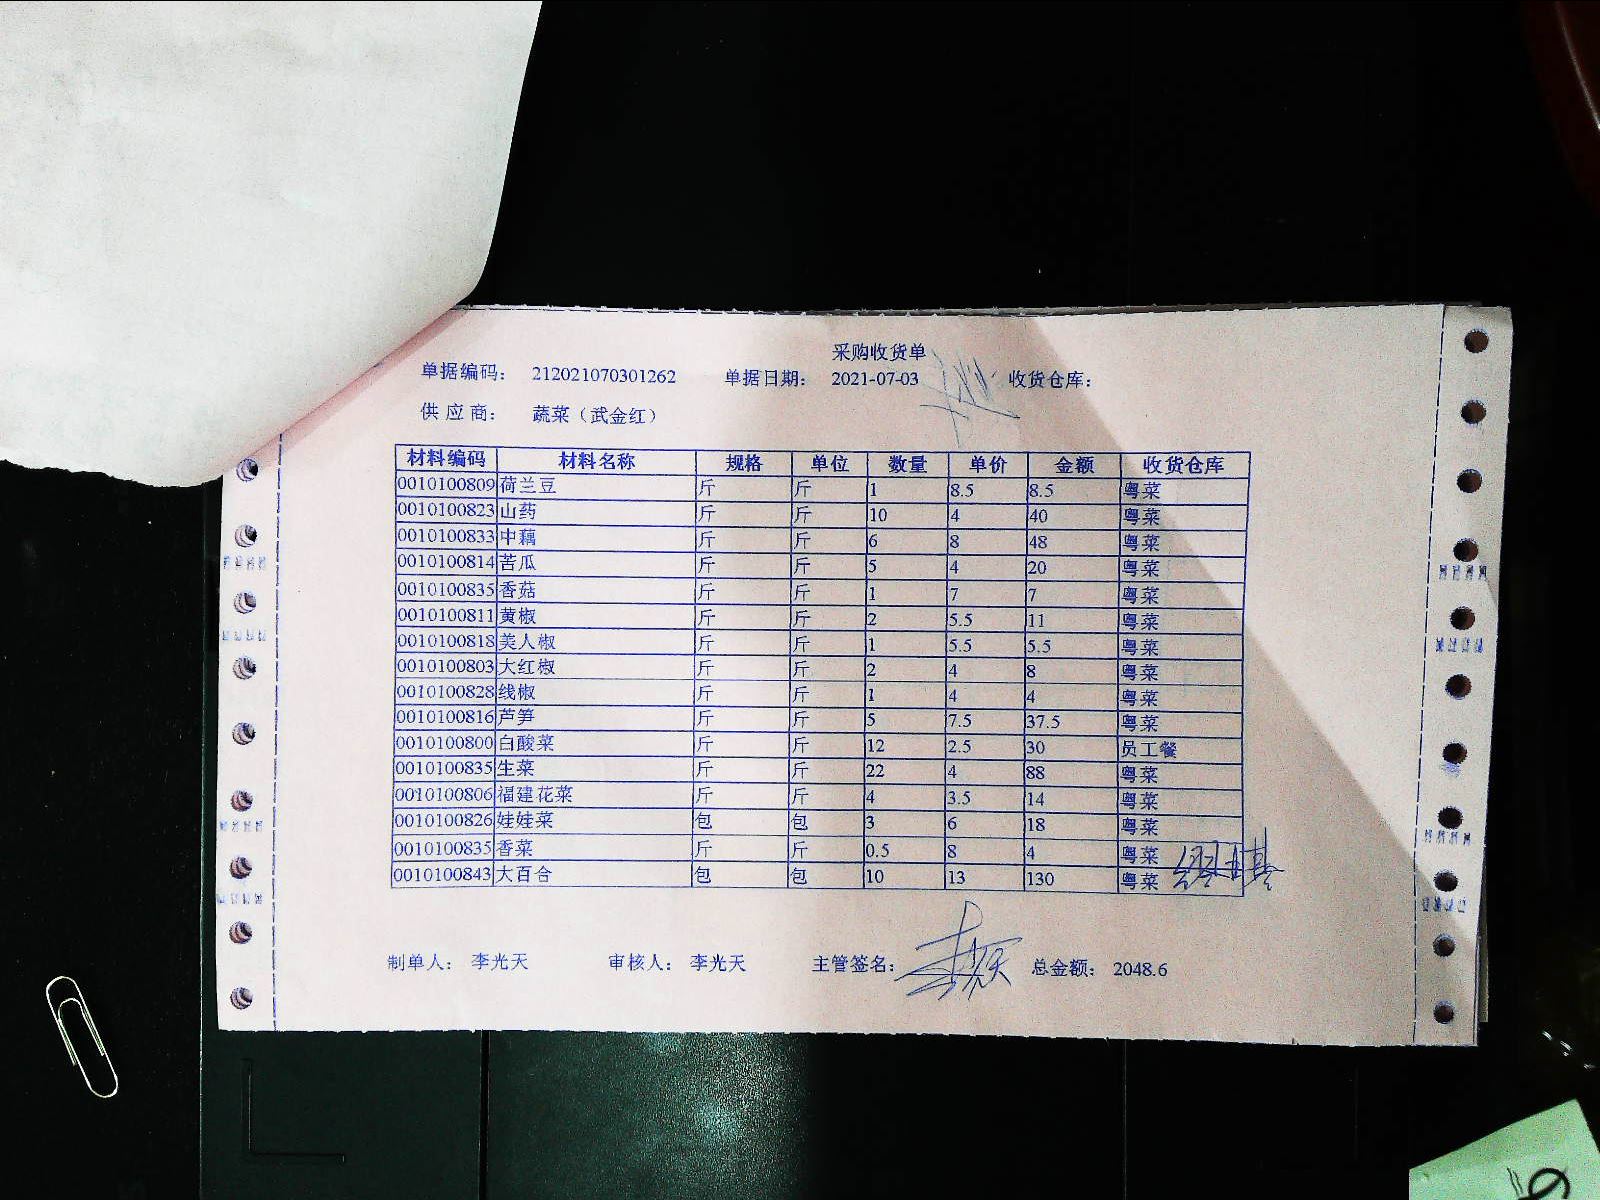 采购收货单
单据编码： 212021070301262 单据日期： 2021-07-03 收货仓库：
供 应 商： 蔬菜（武金红）
材料编码 材料名称 规格 单位 数量 单价 金额 收货仓库
0010100809 荷兰豆 斤 斤 1 8.5 8.5 粤菜
0010100823 山药 斤 斤 10 4 40 粤菜
0010100833 中藕 斤 斤 6 8 48 粤菜
0010100814 苦瓜 斤 斤 5 4 20 粤菜
0010100835 香菇 斤 斤 1 7 7 粤菜
0010100811 黄椒 斤 斤 2 5.5 11 粤菜
0010100818 美人椒 斤 斤 1 5.5 5.5 粤菜
0010100803 大红椒 斤 斤 2 4 8 粤菜
0010100828 线椒 斤 斤 1 4 4 粤菜
0010100816 芦笋 斤 斤 5 7.5 37.5 粤菜
0010100800 白酸菜 斤 斤 12 2.5 30 员工餐
0010100835 生菜 斤 斤 22 4 88 粤菜
0010100806 福建花菜 斤 斤 4 3.5 14 粤菜
0010100826 娃娃菜 包 包 3 6 18 粤菜
0010100835 香菜 斤 斤 0.5 8 4 粤菜
0010100843 大百合 包 包 10 13 130 粤菜
制单人： 李光天 审核人： 李光天 主管签名： 总金额： 2048.6